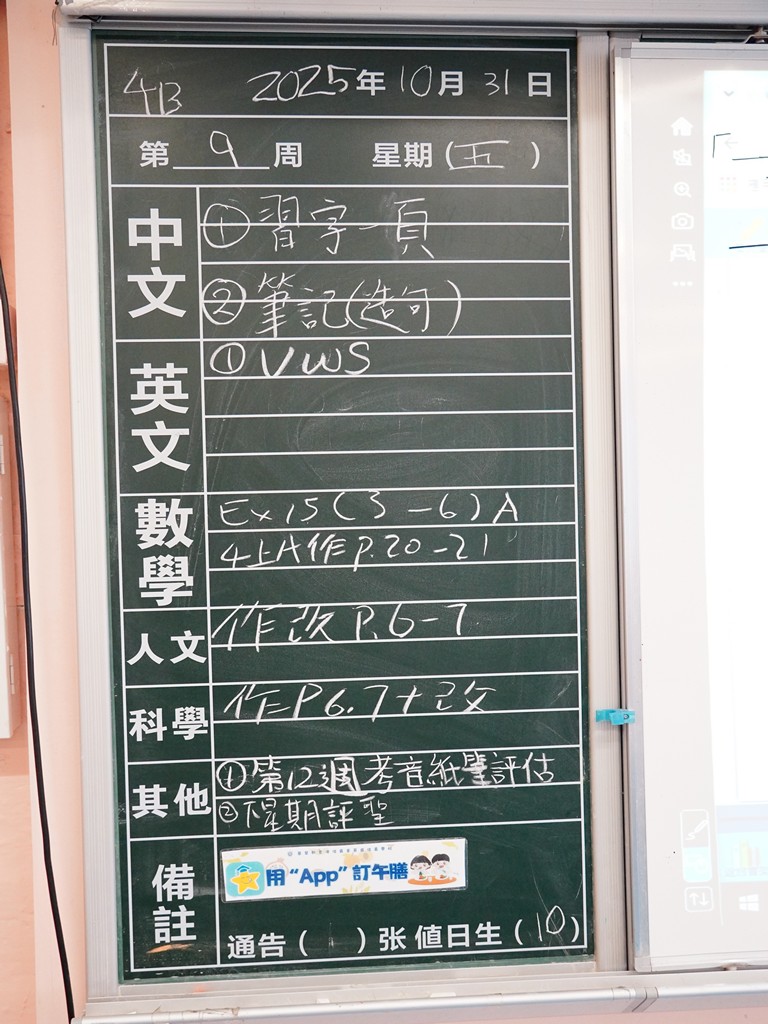 4B 2025年10月31日
第 9 周 星期(五)
中文
①習字一頁
②筆記(造句)
英文
①VWS
數學
Ex15(3-6)A
4上A作P.20-21
人文
作改P.6-7
科學
作=P6.7+改
其他
①第12週考音紙筆評估
②下星期評聖
備註
用“App”訂午膳
通告( )张 值日生(10)